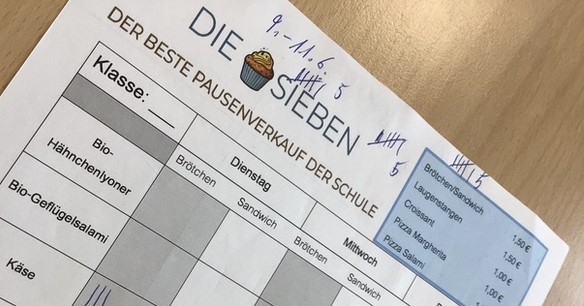 9.-11.6.
DIE SIEBEN
5
DER BESTE PAUSENVERKAUF DER SCHULE
5
5
Klasse: __
Dienstag
Mittwoch
Brötchen
Sandwich
Brötchen
Sandwich
Bio-
Hähnchenlyoner
Bio-Geflügelsalami
Käse
Brötchen/Sandwich 1,50 €
Laugenstangen 1,50 €
Croissant 1,00 €
Pizza Margherita
Pizza Salami